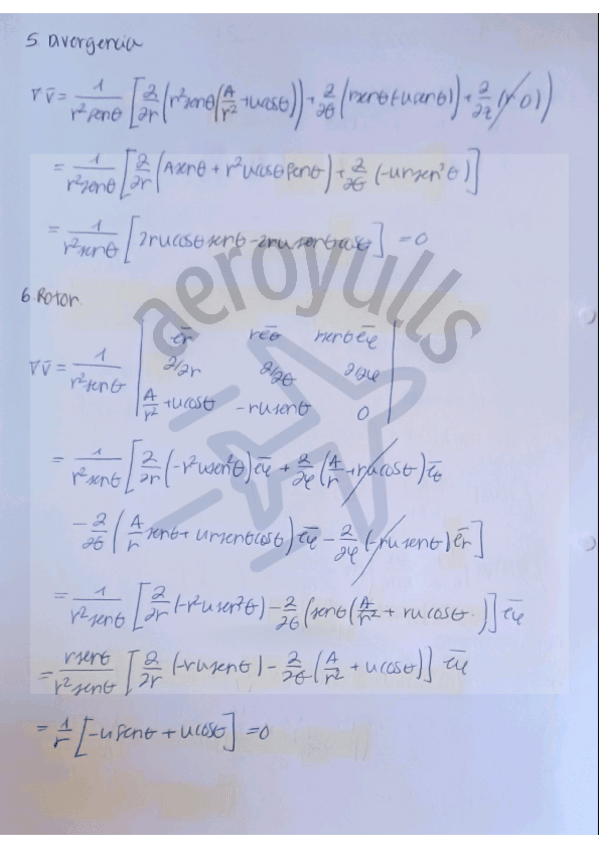 5. Divergencia
∇ v̄ = 1/(r² senθ) [ ∂/∂r (r² senθ (A/r² + u cosθ)) + ∂/∂θ (r senθ (-u senθ)) + ∂/∂z (r 0) ]
= 1/(r² senθ) [ ∂/∂r (A senθ + r² u cosθ senθ) + ∂/∂θ (-u r sen²θ) ]
= 1/(r² senθ) [ 2ru cosθ senθ - 2ru senθ cosθ ] = 0
aeroyulls
6. Rotor.
∇ v̄ = 1/(r² senθ) | ēr rēθ r senθ ēφ
∂/∂r ∂/∂θ ∂/∂φ
A/r² + u cosθ -ru senθ 0 |
= 1/(r² senθ) [ ∂/∂r (-r² u sen²θ) ēφ + ∂/∂φ (A/r + ru cosθ) ēθ
- ∂/∂θ (A/r senθ + ur senθ cosθ) ēφ - ∂/∂φ (-ru senθ) ēr ]
= 1/(r² senθ) [ ∂/∂r (-r² u sen²θ) - ∂/∂θ (senθ (A/r² + ru cosθ )] ēφ
= r senθ/(r² senθ) [ ∂/∂r (-ru senθ) - ∂/∂θ (A/r² + u cosθ) ] ēφ
= 1/r [ -u senθ + u cosθ ] = 0